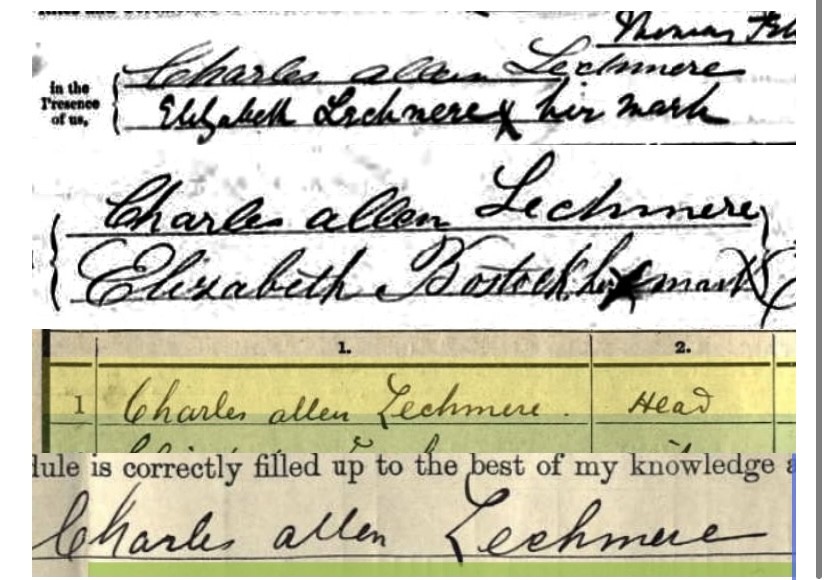 Thomas
Charles allen Lechmere
in the
Presence
of us,
Elizabeth Lechmere X her mark
Charles allen Lechmere
Elizabeth Bostock her X mark
1. 2.
1 Charles allen Lechmere. Head
dule is correctly filled up to the best of my knowledge
Charles allen Lechmere